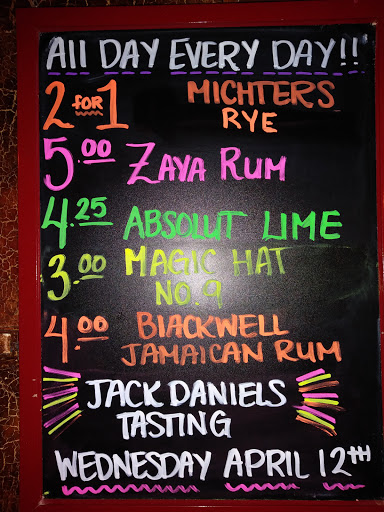 All DAY EVERY DAY!!
2 FOR 1 MICHTERS
RYE
5.00 ZAYA RUM
4.25 ABSOLUT LIME
3.00 MAGIC HAT
NO.9
4.00 BlACKWELL
JAMAICAN RUM
JACK DANIELS
TASTING
WEDNESDAY APRIL 12TH